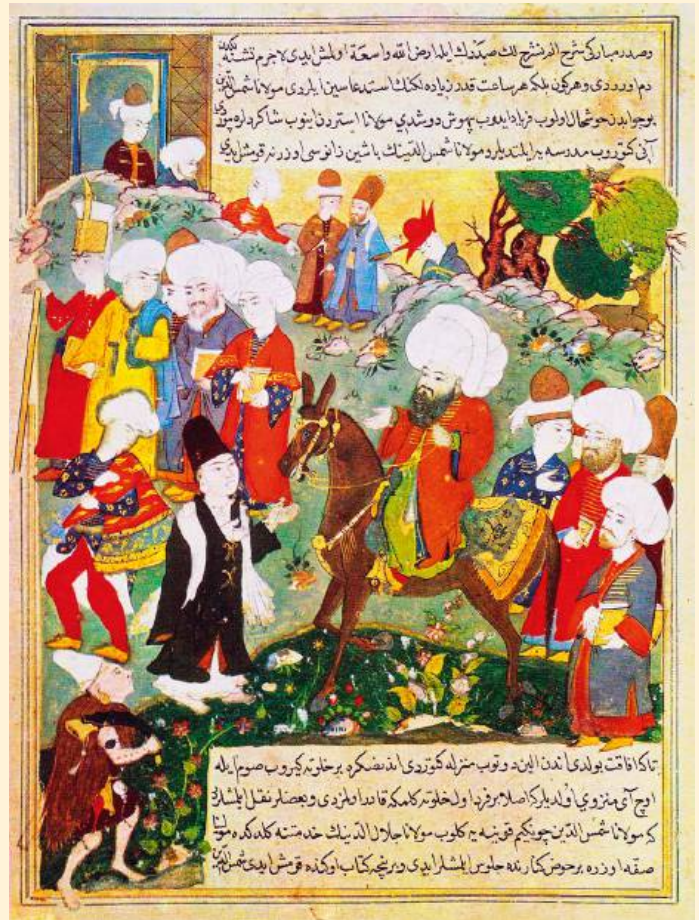 وصدر مبارکی شرح الم نشرح لك صدرك ایله ارض الله واسعة اولمش ایدی لاجرم تشنه
دم اورردی وهرکون بلکه هر ساعت قدر زیاده نکنك استدعاسین ایلردی مولانا شمس الدین
بو جوابدن خوشحال اولوب فریاد ایدوب بیهوش دوشدی مولانا استردن اینوب شاکردلره
آنی کتوروب مدرسه یه ایلتدیلر ومولانا شمس الدینك باشین زانوسی اوزرنه قومش ایدی
تاکه افاقت بولدی اندن الین دوتوب منزله کتوردی اندنصکره بر خلوته کیروب صوم ایله
اوچ آی منزوی اولدیلر که اصلا بر فرد اول خلوته کلمکه قادر اولمزدی وبعضلر نقل ایلمشلر
که مولانا شمس الدین چونکیم قونیه یه کلوب مولانا جلال الدینك خدمتنه کلدکده
صفه اوزره بر حوض کنارنده جلوس ایلمشلر ایدی وبر نیچه کتاب اوکنده قومش ایدی شمس الدین